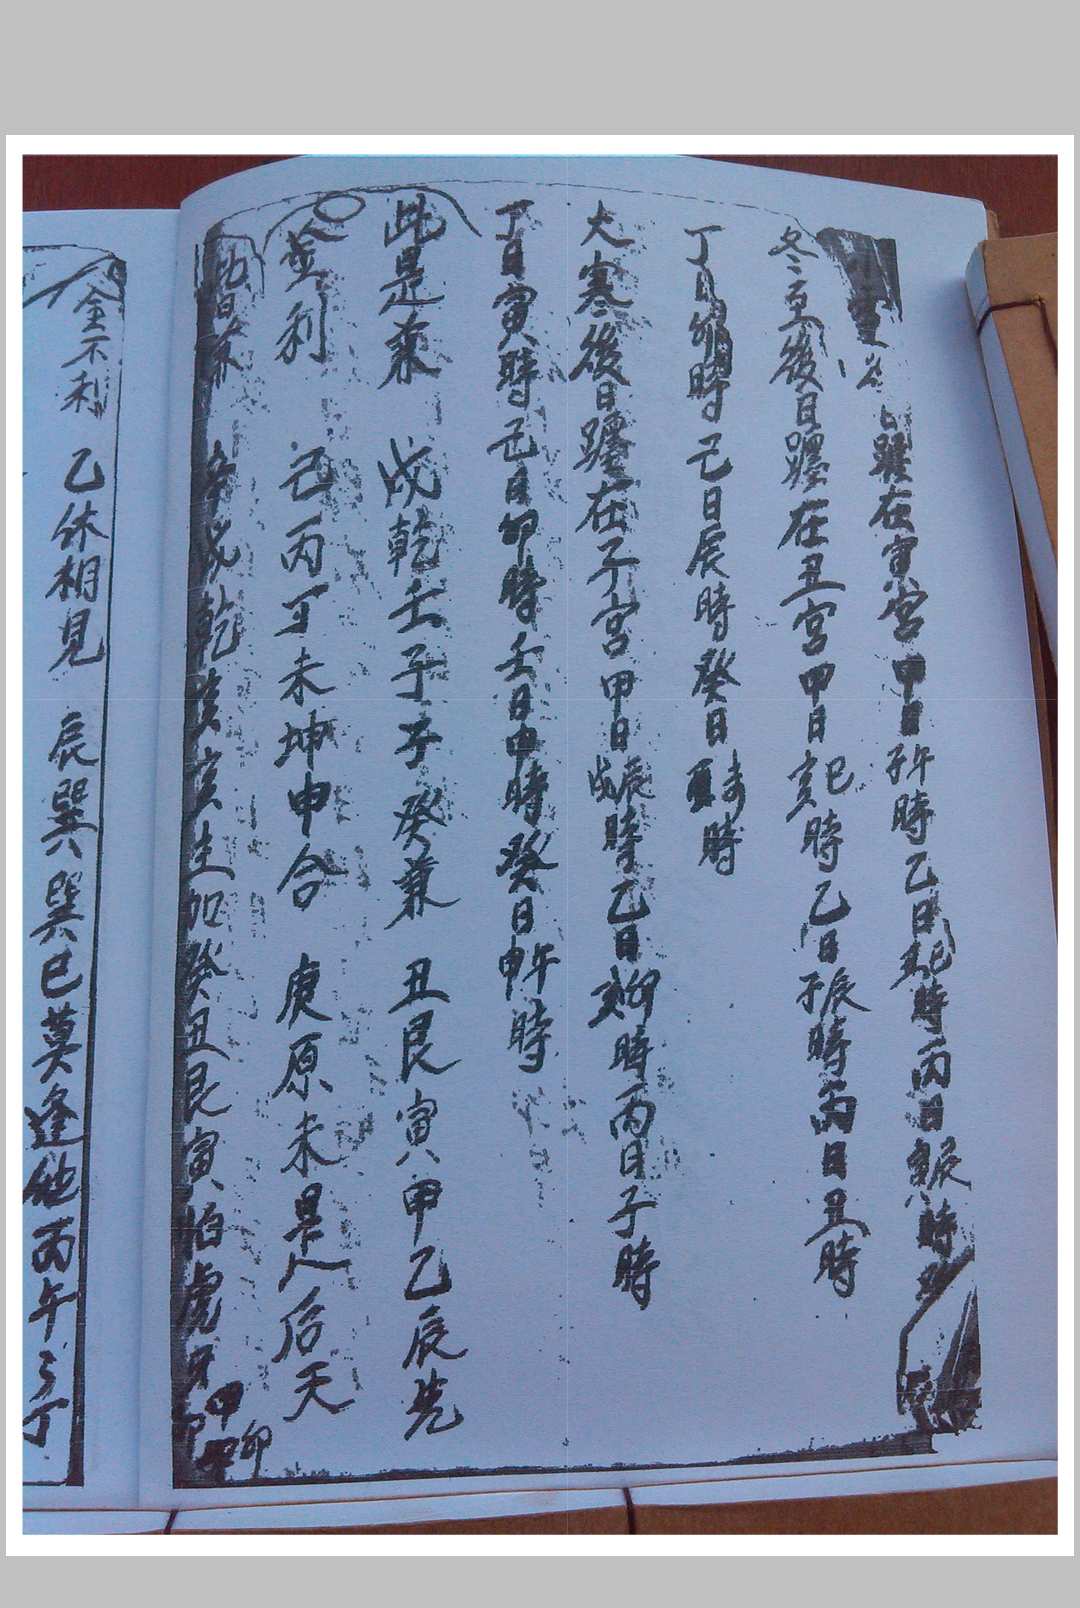 躔在寅宮甲日子午時乙日丑巳時丙日寅辰時
冬至後日躔在丑宮甲日亥巳時乙日子辰時丙日丑時
丁日卯時己日辰時癸日未時
大寒後日躔在子宮甲日戌辰時乙日亥卯時丙日子時
丁日寅時己日卯時壬日申時癸日申午時
此是兼 戌乾壬子子癸兼 丑艮寅甲乙辰先
並利 己丙丁未坤申合 庚原未是后天
辛戌乾 亥生加癸丑艮寅怕虎 甲卯
金不利 乙休相見 辰巽巽巳莫逢他丙午丁